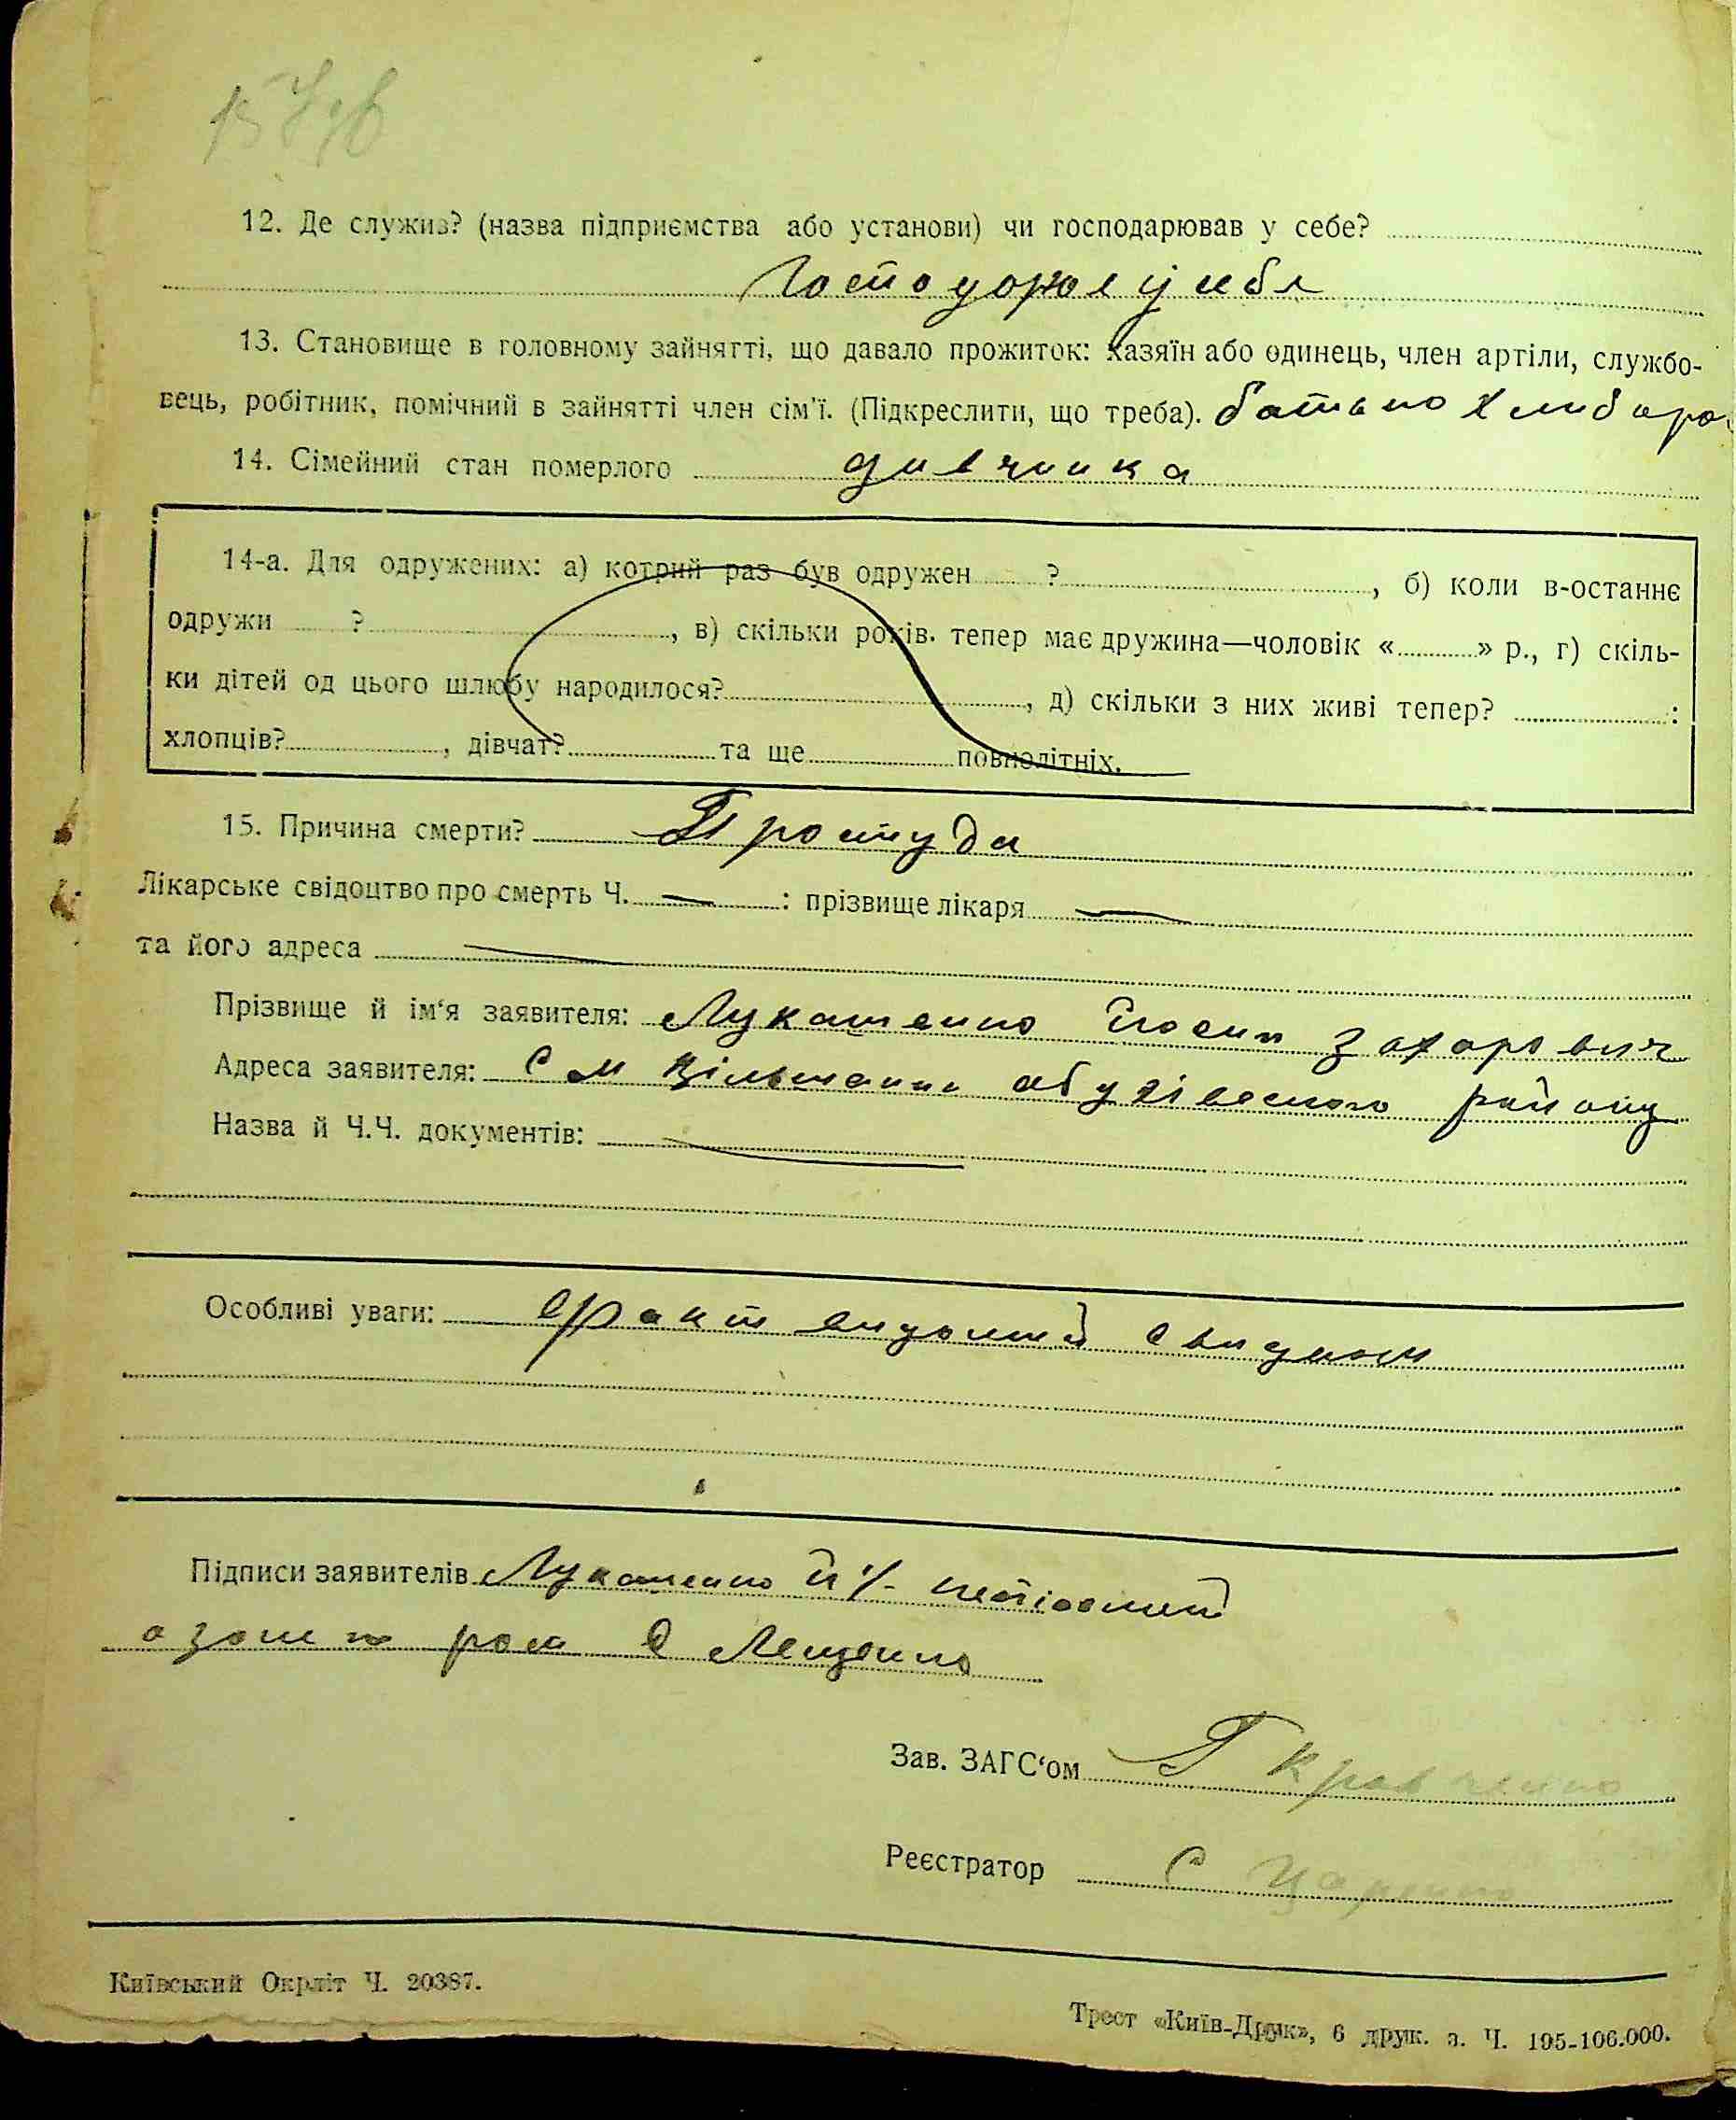 12. Де служив? (назва підприємства або установи) чи господарював у себе?
Господорює у себе
13. Становище в головному зайнятті, що давало прожиток: хазяїн або одинець, член артіли, службо-
вець, робітник, помічний в зайнятті член сім'ї. (Підкреслити, що треба). батько хлибороб
14. Сімейний стан померлого дивчинка
14-а. Для одружених: а) котрий раз був одружен ? , б) коли в-останнє
одружи ? , в) скільки років. тепер має дружина—чоловік « » р., г) скіль-
ки дітей од цього шлюбу народилося? , д) скільки з них живі тепер? :
хлопців? , дівчат? та ще повнолітніх.
15. Причина смерти? Простуда
Лікарське свідоцтво про смерть Ч. — : прізвище лікаря —
та його адреса —
Прізвище й ім'я заявителя: Лукашенко Йосип Захарович
Адреса заявителя: См Вільшанки обухівского району
Назва й Ч.Ч. документів: —
Особливі уваги: Факт видомий свидком
Підписи заявителів Лукашенко
Лещенко
Зав. ЗАГС'ом Г Кравченко
Реєстратор С
Київський Окрліт Ч. 20387.
Трест «Київ-Друк», 6 друк. з. Ч. 195-106.000.